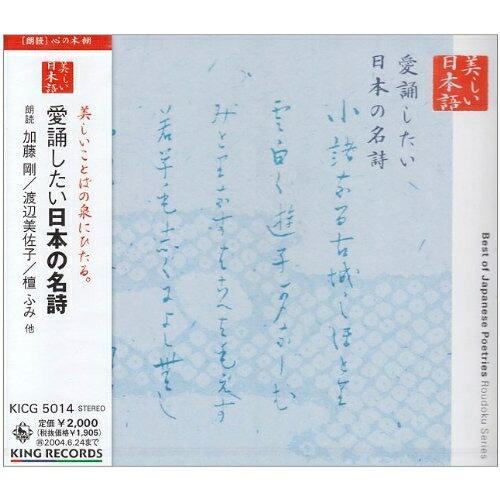 [朗読] 心の本棚
美しい
日本語
美しいことばの泉にひたる。
愛誦したい日本の名詩
朗読 加藤 剛/渡辺美佐子/檀 ふみ 他
KICG 5014 STEREO
定価 ¥2,000
(税抜価格¥1,905)
再2004.6.24まで
KING RECORDS
美しい
日本語
愛誦したい
日本の名詩
小諸なる古城のほとり
雲白く遊子かなしむ
みどりなすはこべは萌えず
若草も志くによしなし
Best of Japanese Poetries Roudoku Series